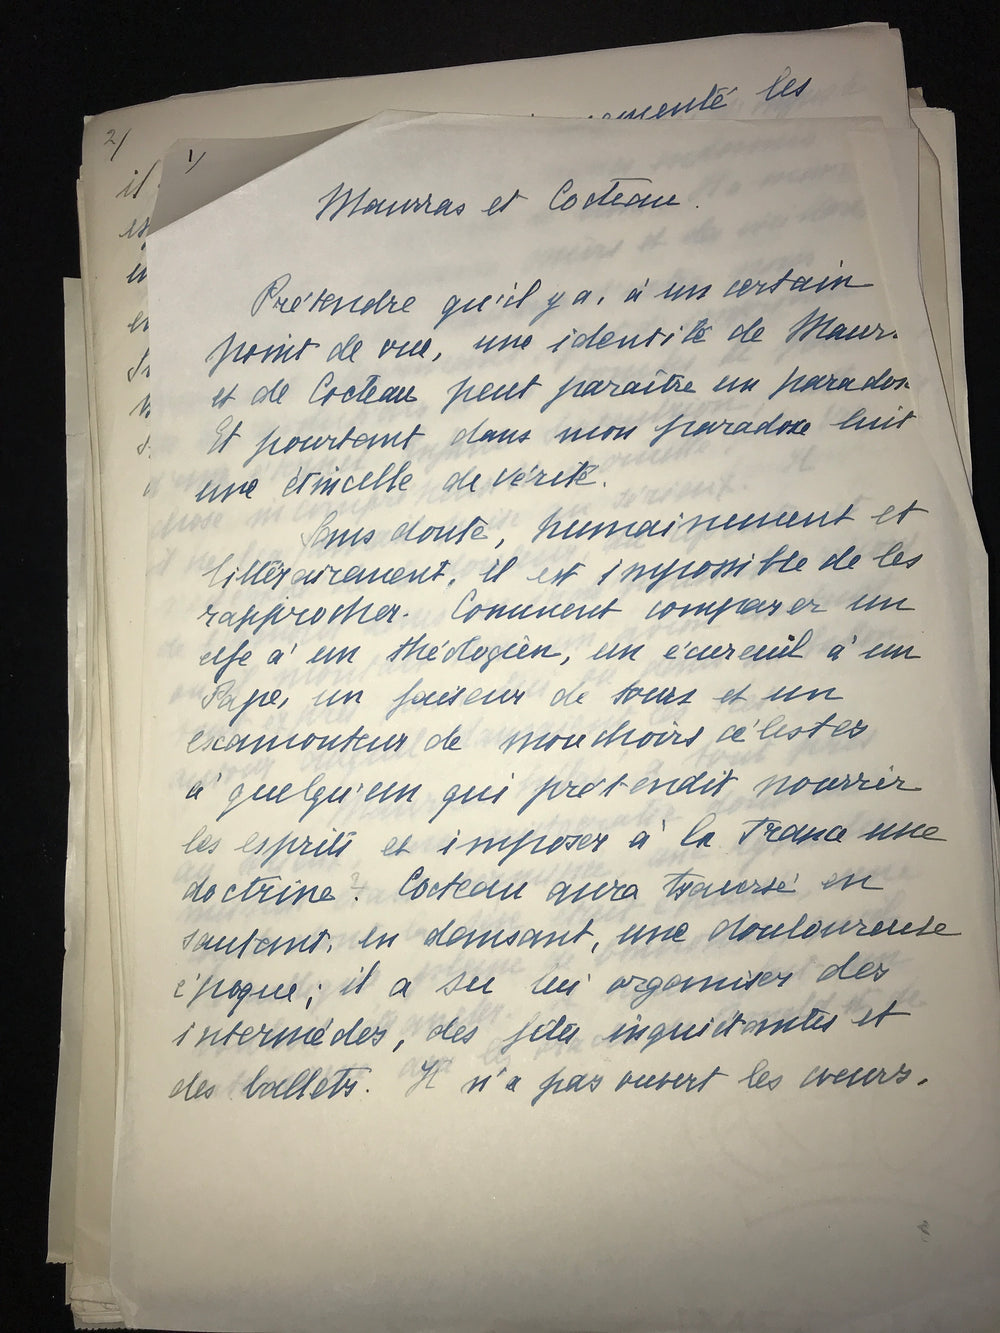 2/
ementé les
il
1/
Maurras et Cocteau.
Prétendre qu'il y a, à un certain
point de vue, une identité de Maur
et de Cocteau peut paraître un paradox
Et pourtant dans mon paradoxe luit
une étincelle de vérité.
Sans doute, humainement et
littérairement, il est impossible de les
rapprocher. Comment comparer un
elfe à un théologien, un écureuil à un
Pape, un faiseur de tours et un
escamoteur de mouchoirs célestes
à quelqu'un qui prétendit nourrir
les esprits et imposer à la France une
doctrine? Cocteau aura traversé en
sautant, en dansant, une douloureuse
époque; il a su lui organiser des
intermèdes, des fêtes inquiétantes et
des ballets. Il n'a pas ouvert les coeurs,